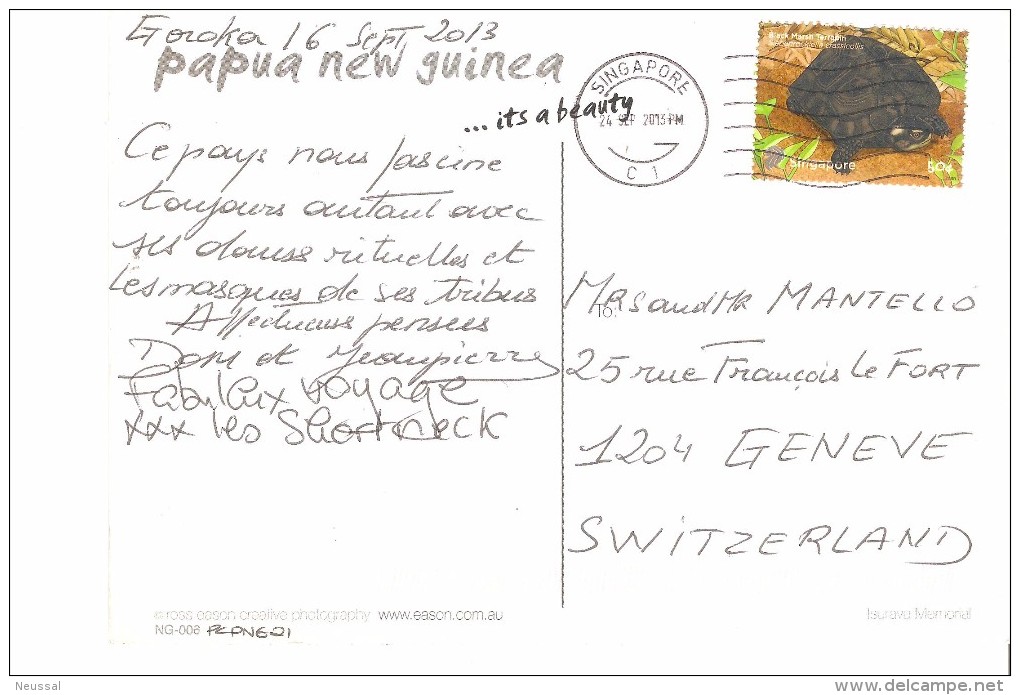 Goroka 16 Sept 2013
papua new guinea
... its a beauty
Ce pays nous fascine
toujours autant avec
ses danses rituelles et
les masques de ses tribus
Affectueuses pensées
Dom et Jeanpierre
Fabuleux voyage
xxx les Shortneck
SINGAPORE
24 SEP 2013 PM
C 1
Black Marsh Terrapin
Siebenrockiella crassicollis
Singapore
50¢
To:
MRS and MR MANTELLO
25 rue François Le FORT
1204 GENEVE
SWITZERLAND
© ross eason creative photography www.eason.com.au
NG-006 PCPNG21
Isurava Memorial
Neussal
www.delcampe.net